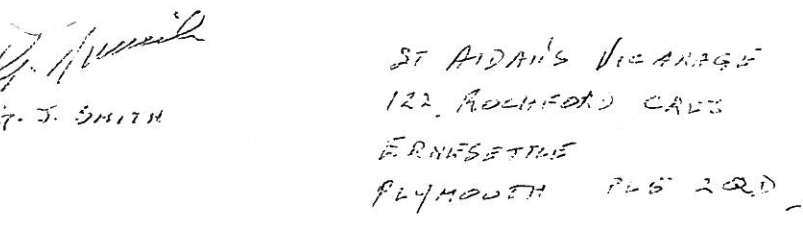 J. SMITH
ST AIDAN'S VICARAGE
122, ROCHFORD CRES
ERNESETTLE
PLYMOUTH PL5 2QD